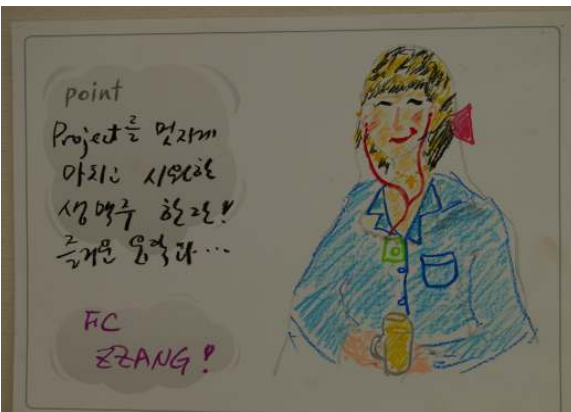 point
Project를 멋지게
마치고 시원한
생맥주 한잔!
즐거운 음악과...
FC
ZZANG!